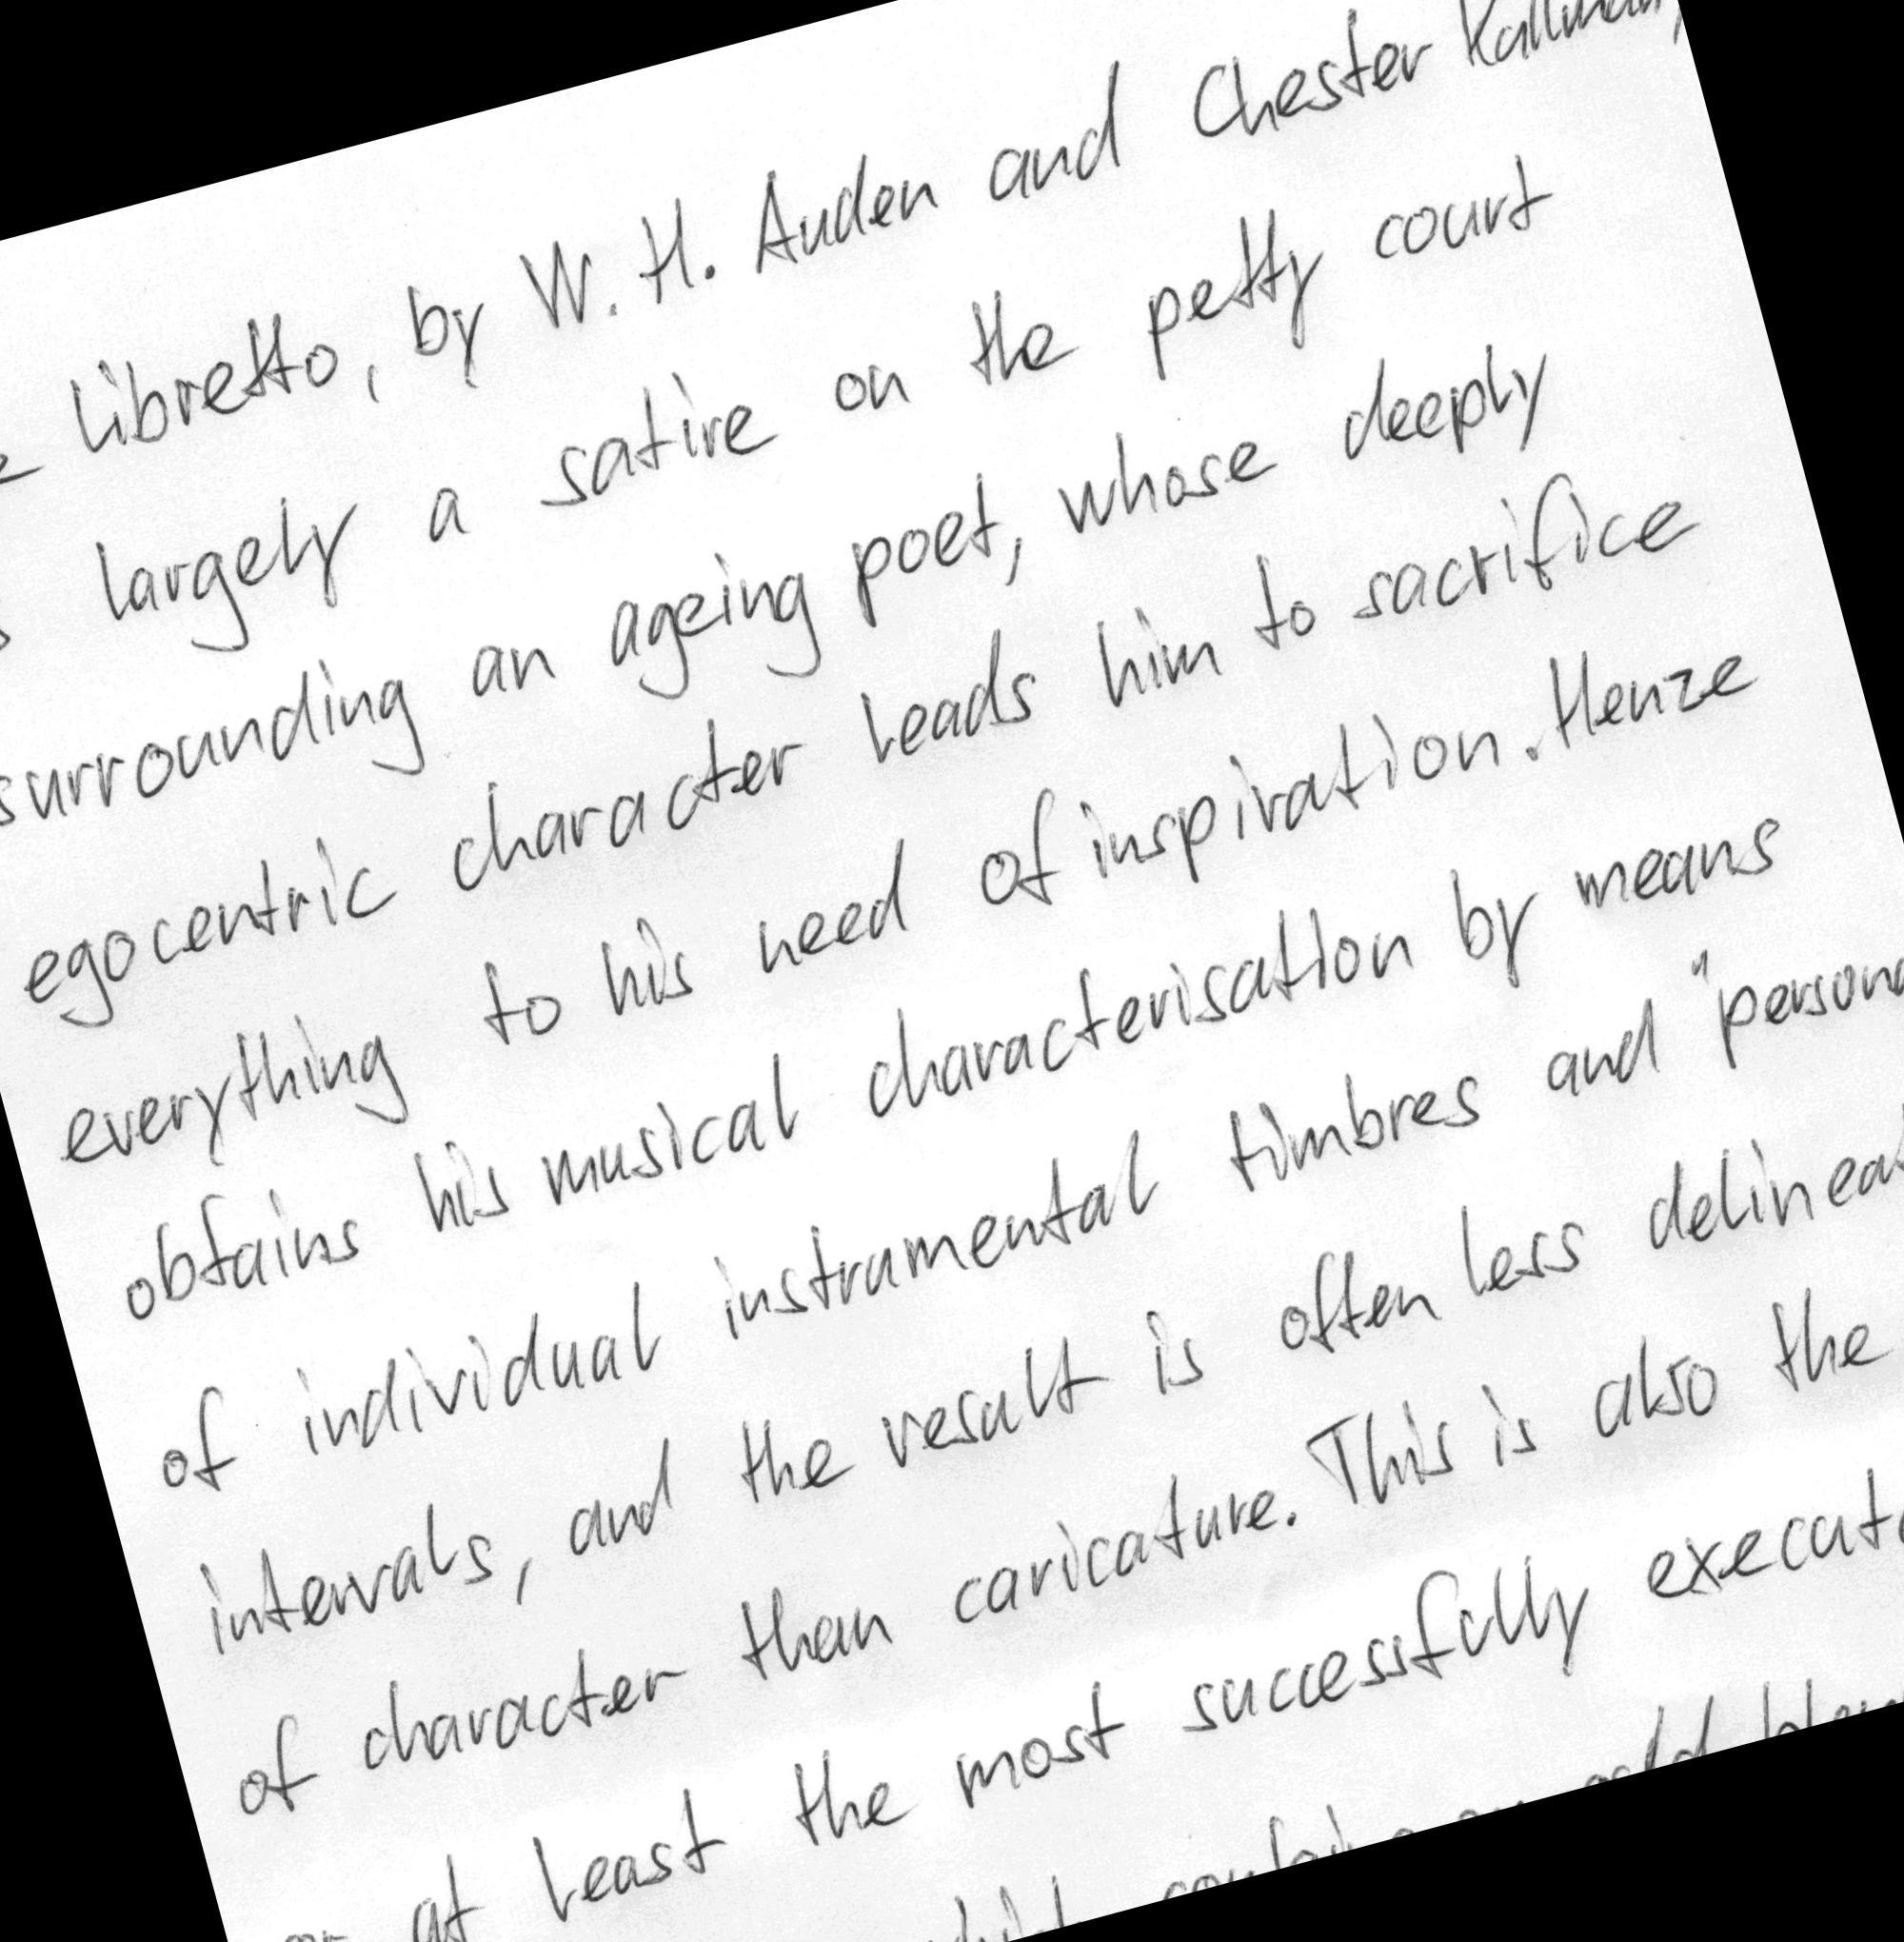 libretto, by W. H. Auden and Chester Kallman,
largely a satire on the petty court
surrounding an ageing poet, whose deeply
egocentric character leads him to sacrifice
everything to his need of inspiration. Henze
obtains his musical characterisation by means
of individual instrumental timbres and "person
intervals, and the result is often less delinea
of character than caricature. This is also the
at least the most successfully execut